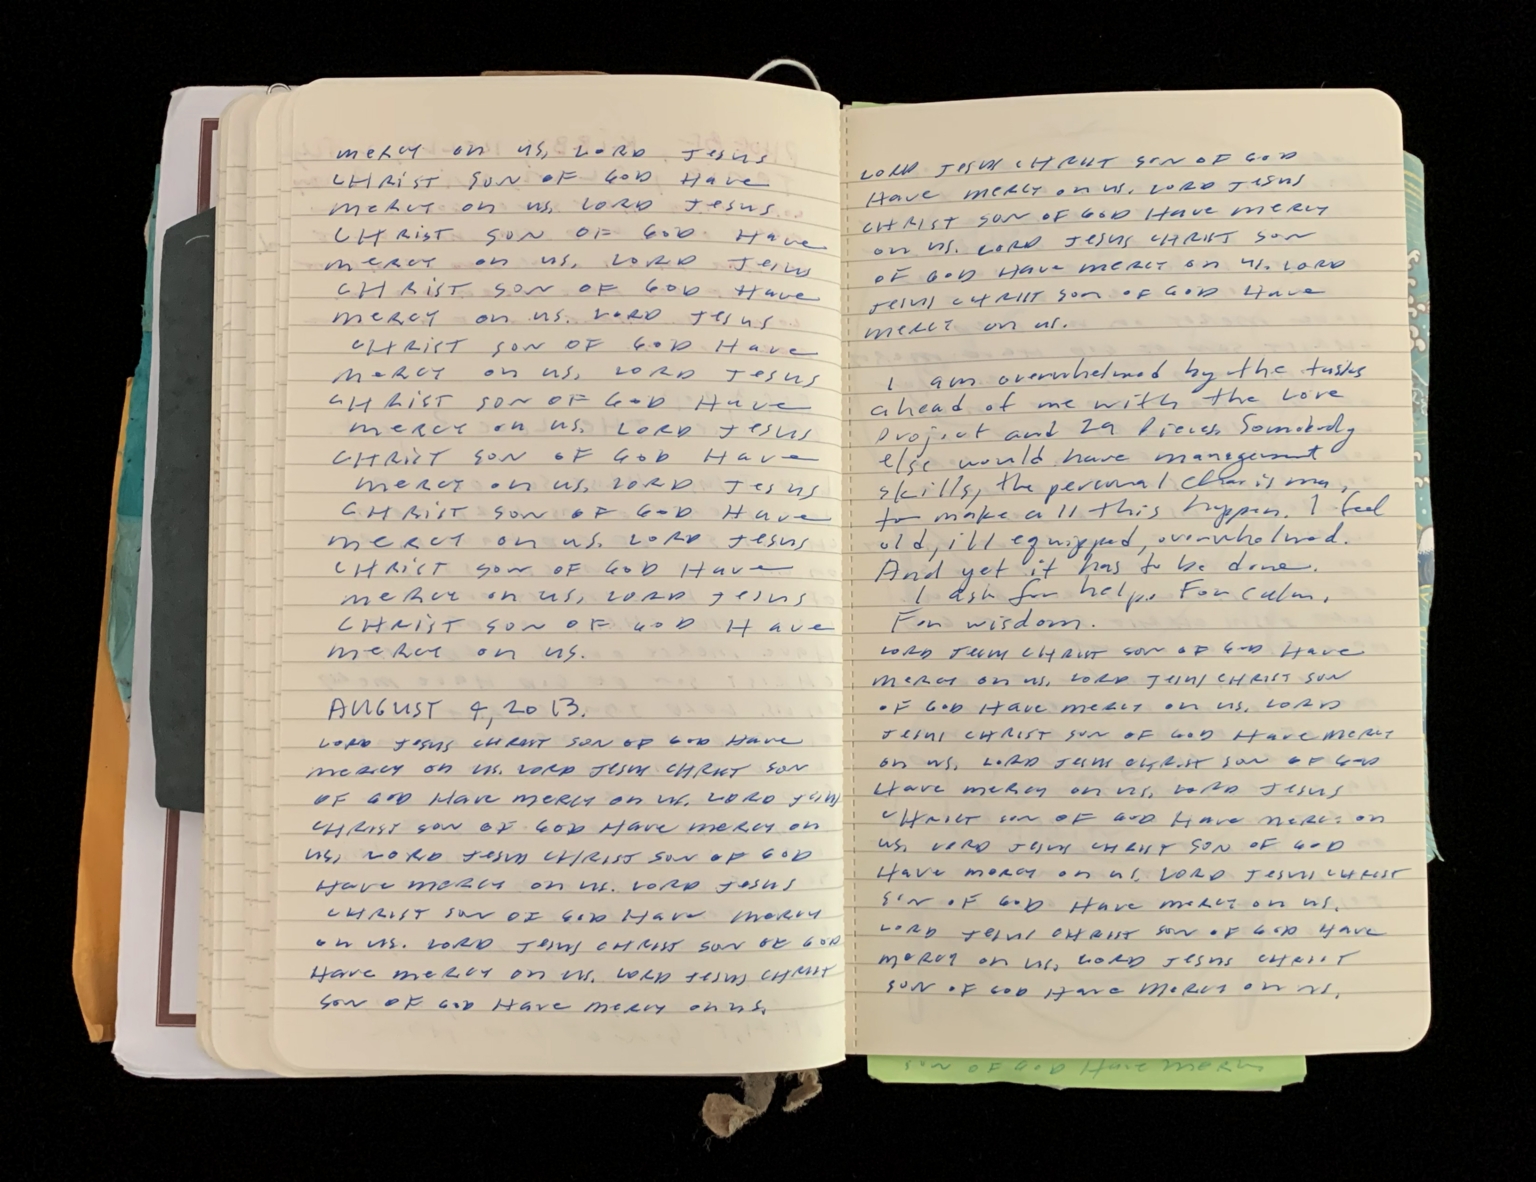 mercy on us, LORD Jesus
CHRIST SON OF GOD Have
mercy on us, LORD Jesus
CHRIST SON OF GOD Have
mercy on us, LORD Jesus
CHRIST SON OF GOD Have
mercy on us. LORD Jesus
CHRIST SON OF GOD Have
mercy on us, LORD Jesus
CHRIST SON OF GOD Have
mercy on us, LORD Jesus
CHRIST SON OF GOD Have
mercy on us, LORD Jesus
CHRIST SON OF GOD Have
mercy on us. LORD Jesus
CHRIST SON OF GOD Have
mercy on us, LORD Jesus
CHRIST SON OF GOD Have
mercy on us.
AUGUST 4, 2013.
LORD Jesus CHRIST SON OF GOD Have
mercy on us. LORD Jesus CHRIST SON
OF GOD Have mercy on us. LORD Jesus
CHRIST SON OF GOD Have mercy on
us, LORD Jesus CHRIST SON OF GOD
Have mercy on us. LORD Jesus
CHRIST SON OF GOD Have mercy
on us. LORD Jesus CHRIST SON OF GOD
Have mercy on us. LORD Jesus CHRIST
SON OF GOD Have mercy on us.
LORD Jesus CHRIST SON OF GOD
Have mercy on us. LORD Jesus
CHRIST SON OF GOD Have mercy
on us. LORD Jesus CHRIST SON
OF GOD Have mercy on us. LORD
Jesus CHRIST SON OF GOD Have
mercy on us.
I am overwhelmed by the tasks
ahead of me with the Love
Project and 29 Pieces. Somebody
else would have management
skills, the personal charisma,
to make all this happen. I feel
old, ill equipped, overwhelmed.
And yet it has to be done.
I ask for help. For calm.
For wisdom.
LORD Jesus CHRIST SON OF GOD Have
mercy on us. LORD Jesus CHRIST SON
OF GOD Have mercy on us. LORD
Jesus CHRIST SON OF GOD Have mercy
on us. LORD Jesus CHRIST SON OF GOD
Have mercy on us, LORD Jesus
CHRIST SON OF GOD Have mercy on
us, LORD Jesus CHRIST SON OF GOD
Have mercy on us. LORD Jesus CHRIST
SON OF GOD Have mercy on us.
LORD Jesus CHRIST SON OF GOD Have
mercy on us, LORD Jesus CHRIST
SON OF GOD Have Mercy on us.
SON OF GOD Have mercy